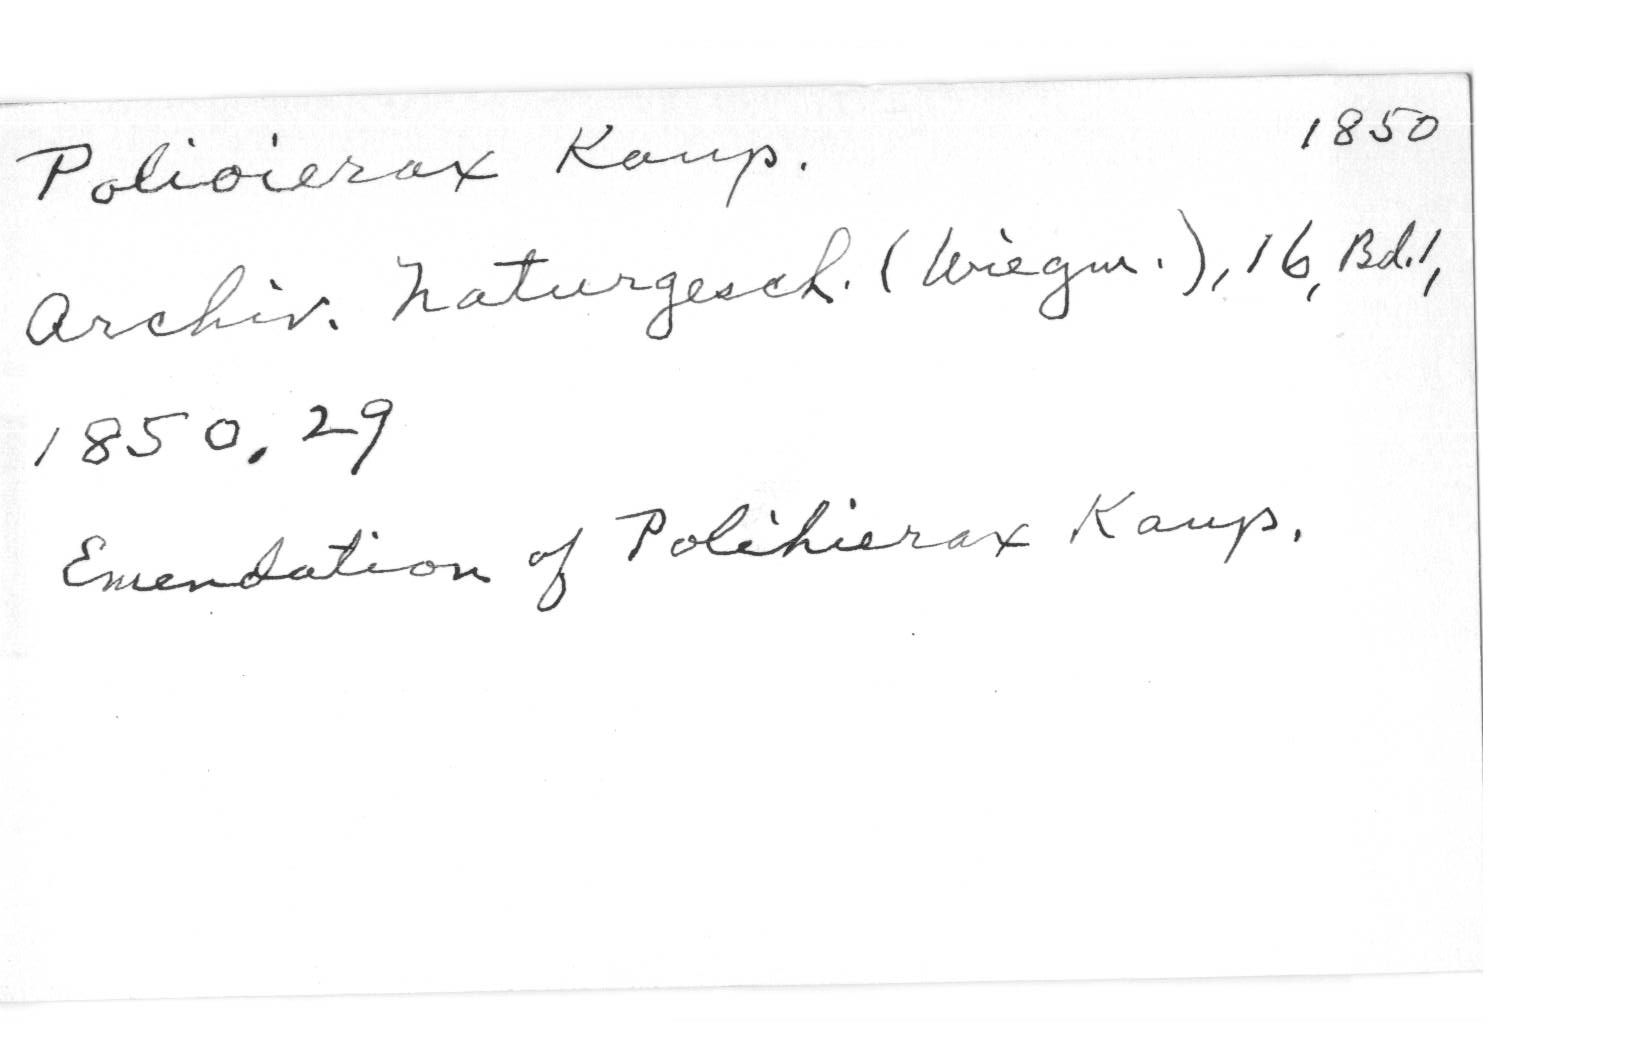 Polioierax Kaup. 1850
Archiv. Naturgesch. (Wiegm.), 16, Bd.1,
1850, 29
Emendation of Polihierax Kaup.